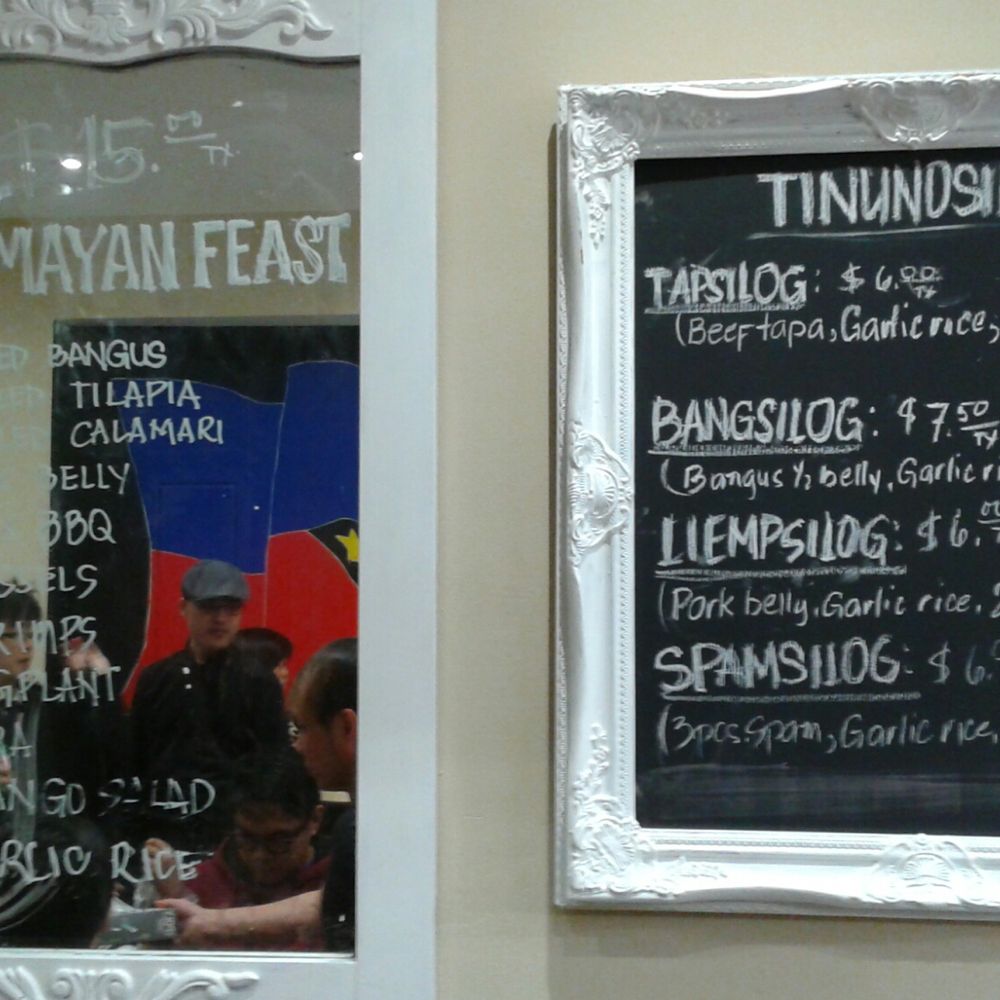 $15.00
TX
MAYAN FEAST
ED BANGUS
TILAPIA
CALAMARI
BELLY
BBQ
SSELS
RIMPS
GGPLANT
RA
ANGO SALAD
RLIC RICE
TINUNOSI
TAPSILOG: $6.00
TX
(Beef tapa, Garlic rice,
BANGSILOG: $7.50
TX
(Bangus ½ belly, Garlic ri
LIEMPSILOG: $6.00
(Pork belly, Garlic rice, 2
SPAMSILOG: $6.
(3pcs. Spam, Garlic rice,